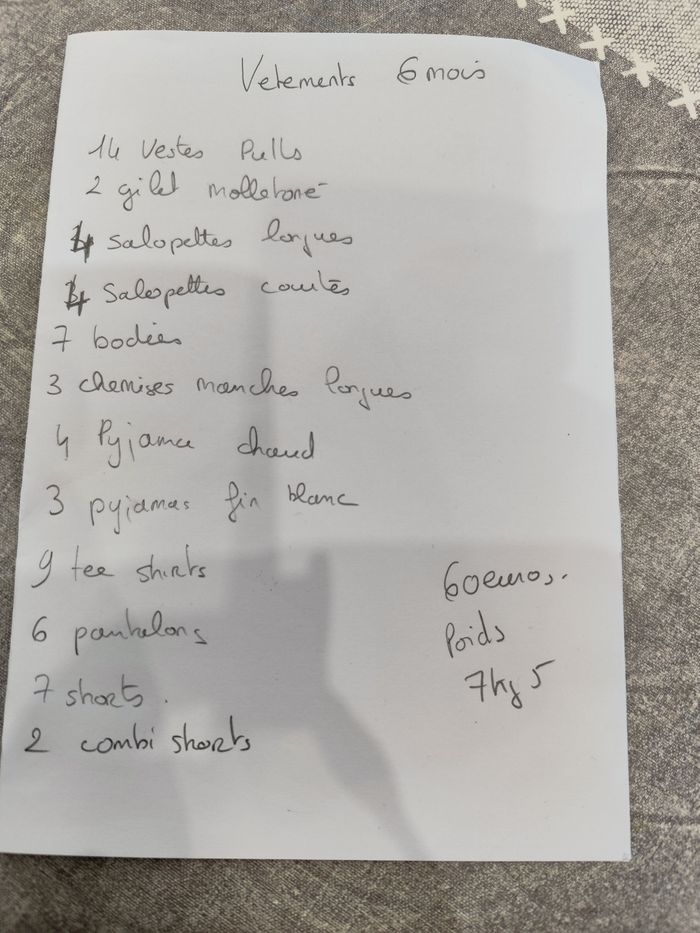 Vetements 6 mois
14 Vestes Pulls
2 gilet molletoné
4 salopettes longues
4 Salopettes courtes
7 bodies
3 chemises manches longues
4 Pyjama chaud
3 pyjamas fin blanc
9 tee shirts
6 pantalons
7 shorts.
2 combi shorts
60 euros.
Poids
7kg 5